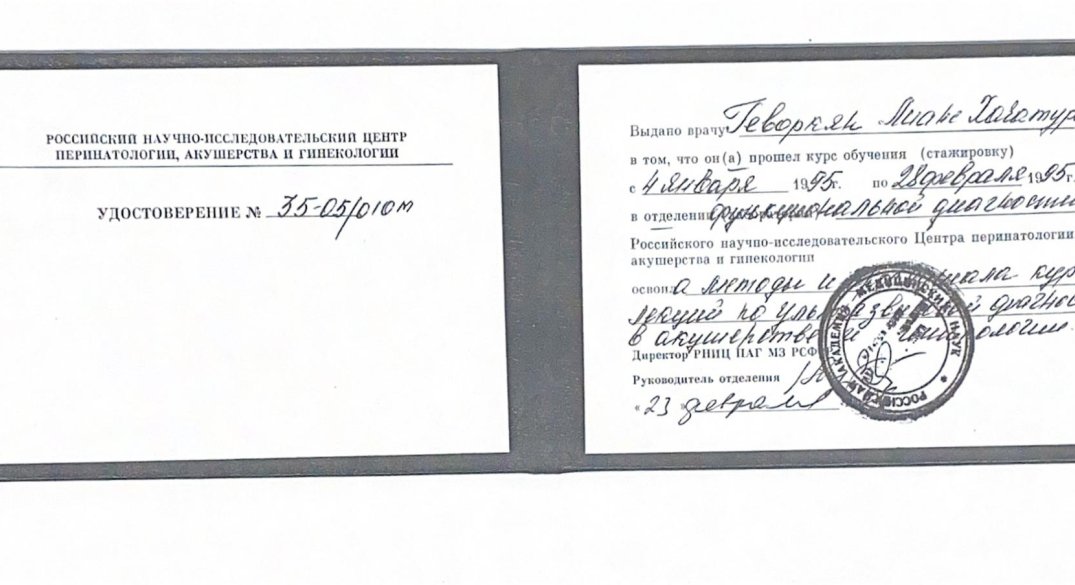 РОССИЙСКИЙ НАУЧНО-ИССЛЕДОВАТЕЛЬСКИЙ ЦЕНТР
ПЕРИНАТОЛОГИИ, АКУШЕРСТВА И ГИНЕКОЛОГИИ
УДОСТОВЕРЕНИЕ № 35-05/010м
Выдано врачу Геворкян Лиане Хачатур
в том, что он(а) прошел курс обучения (стажировку)
с 4 января 1995г. по 28 февраля 1995г.
в отделении функциональной диагности
Российского научно-исследовательского Центра перинатологии
акушерства и гинекологии
освоила методы и кур
лекций по диагнос
в акушерстве и гинекологии.
Директор РНИЦ ПАГ МЗ РСФ
Руководитель отделения
«23 февраля
РОССИЙСКАЯ АКАДЕМИЯ МЕДИЦИНСКИХ НАУК